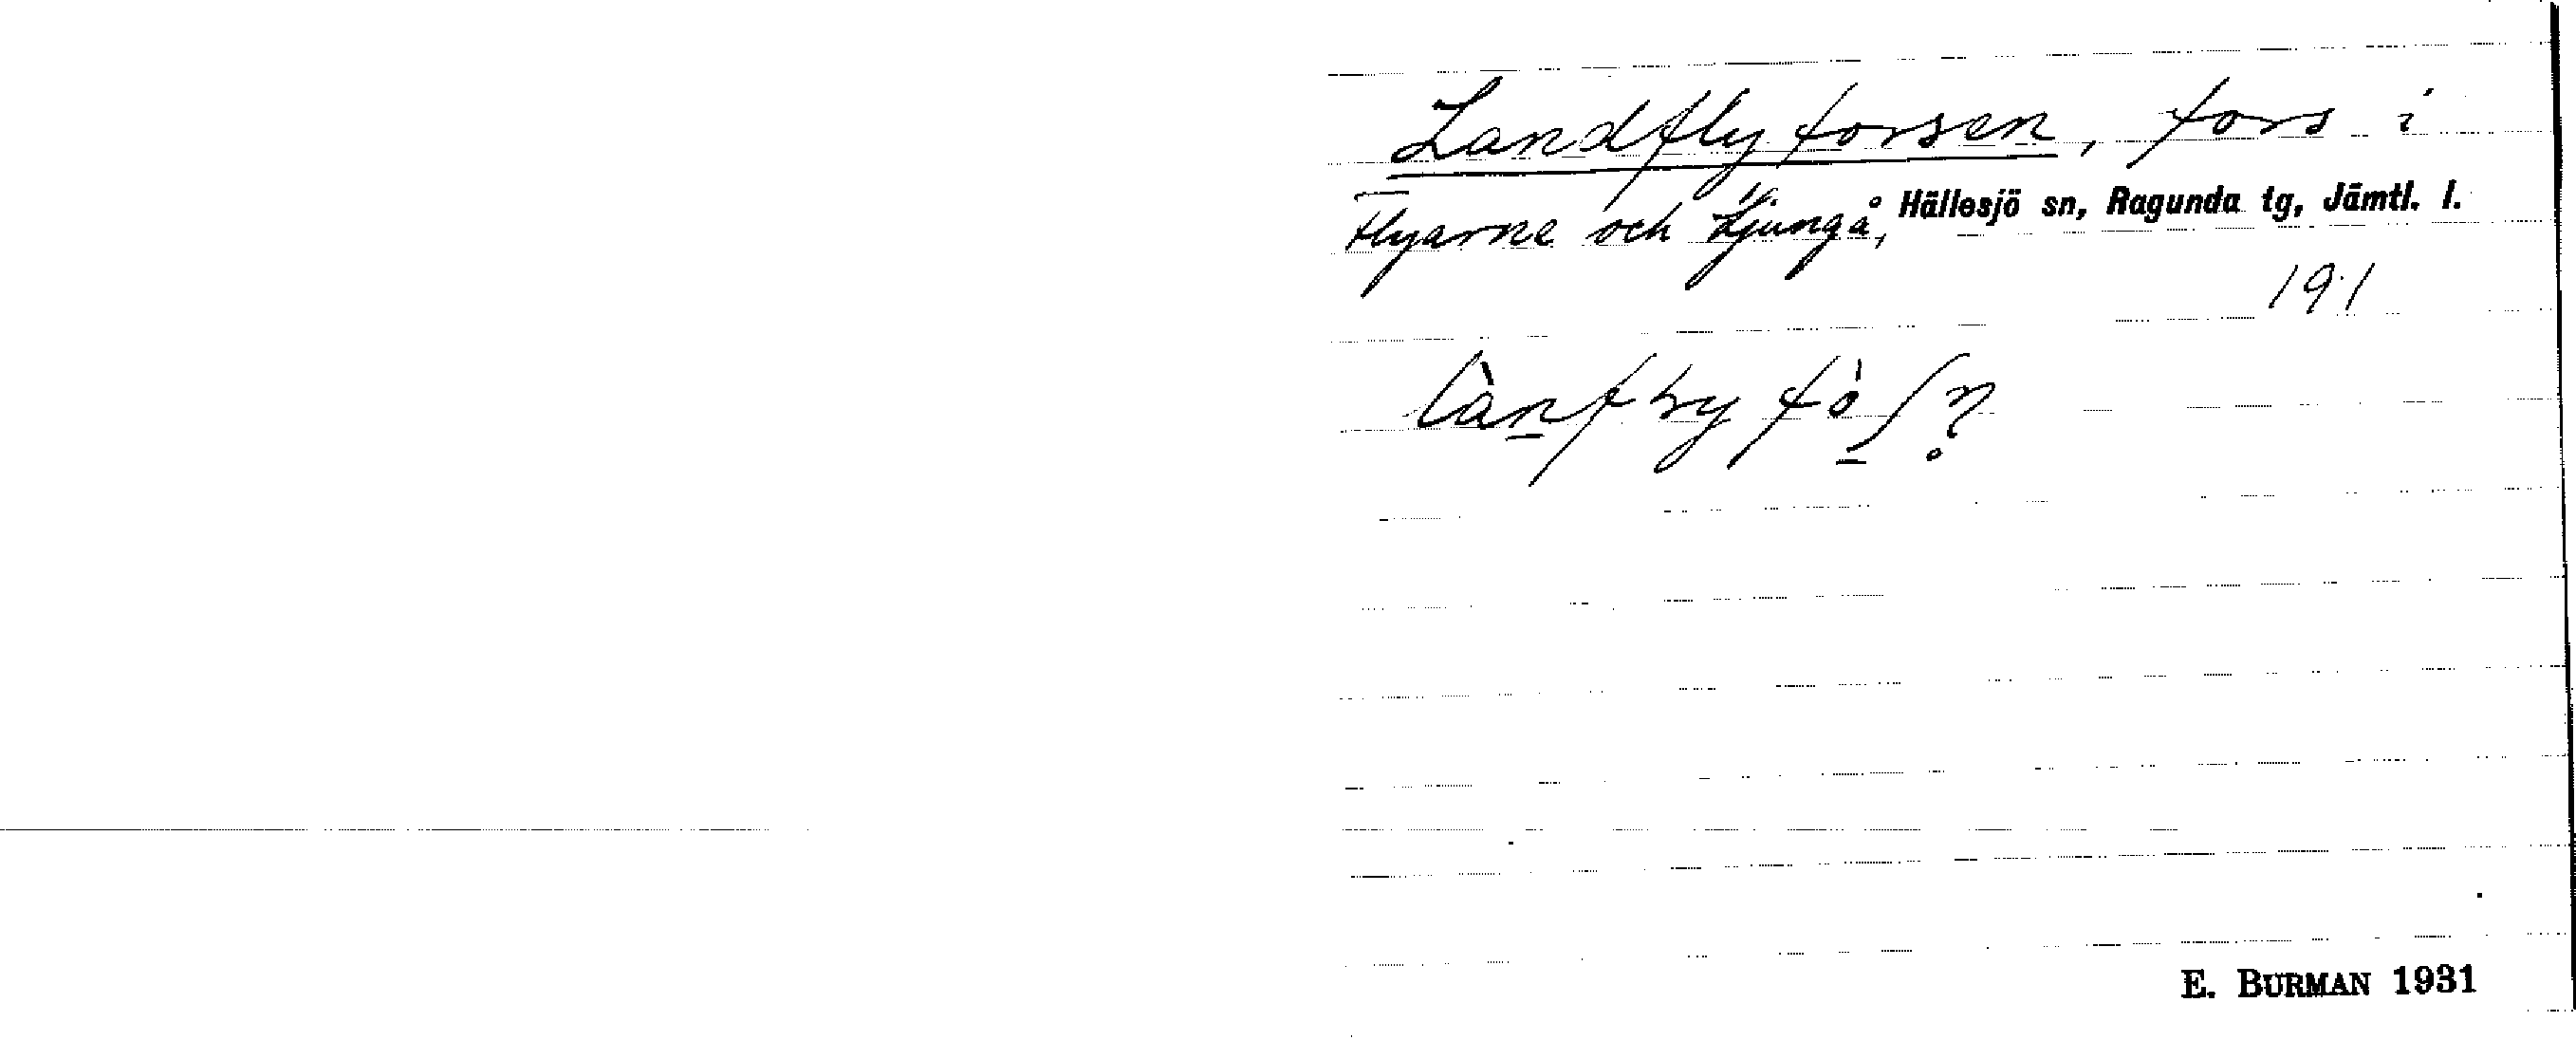 Landflyforsen, fors i
Flyarne och Ljungå, Hällesjö sn, Ragunda tg, Jämtl. l.
191
E. BURMAN 1931